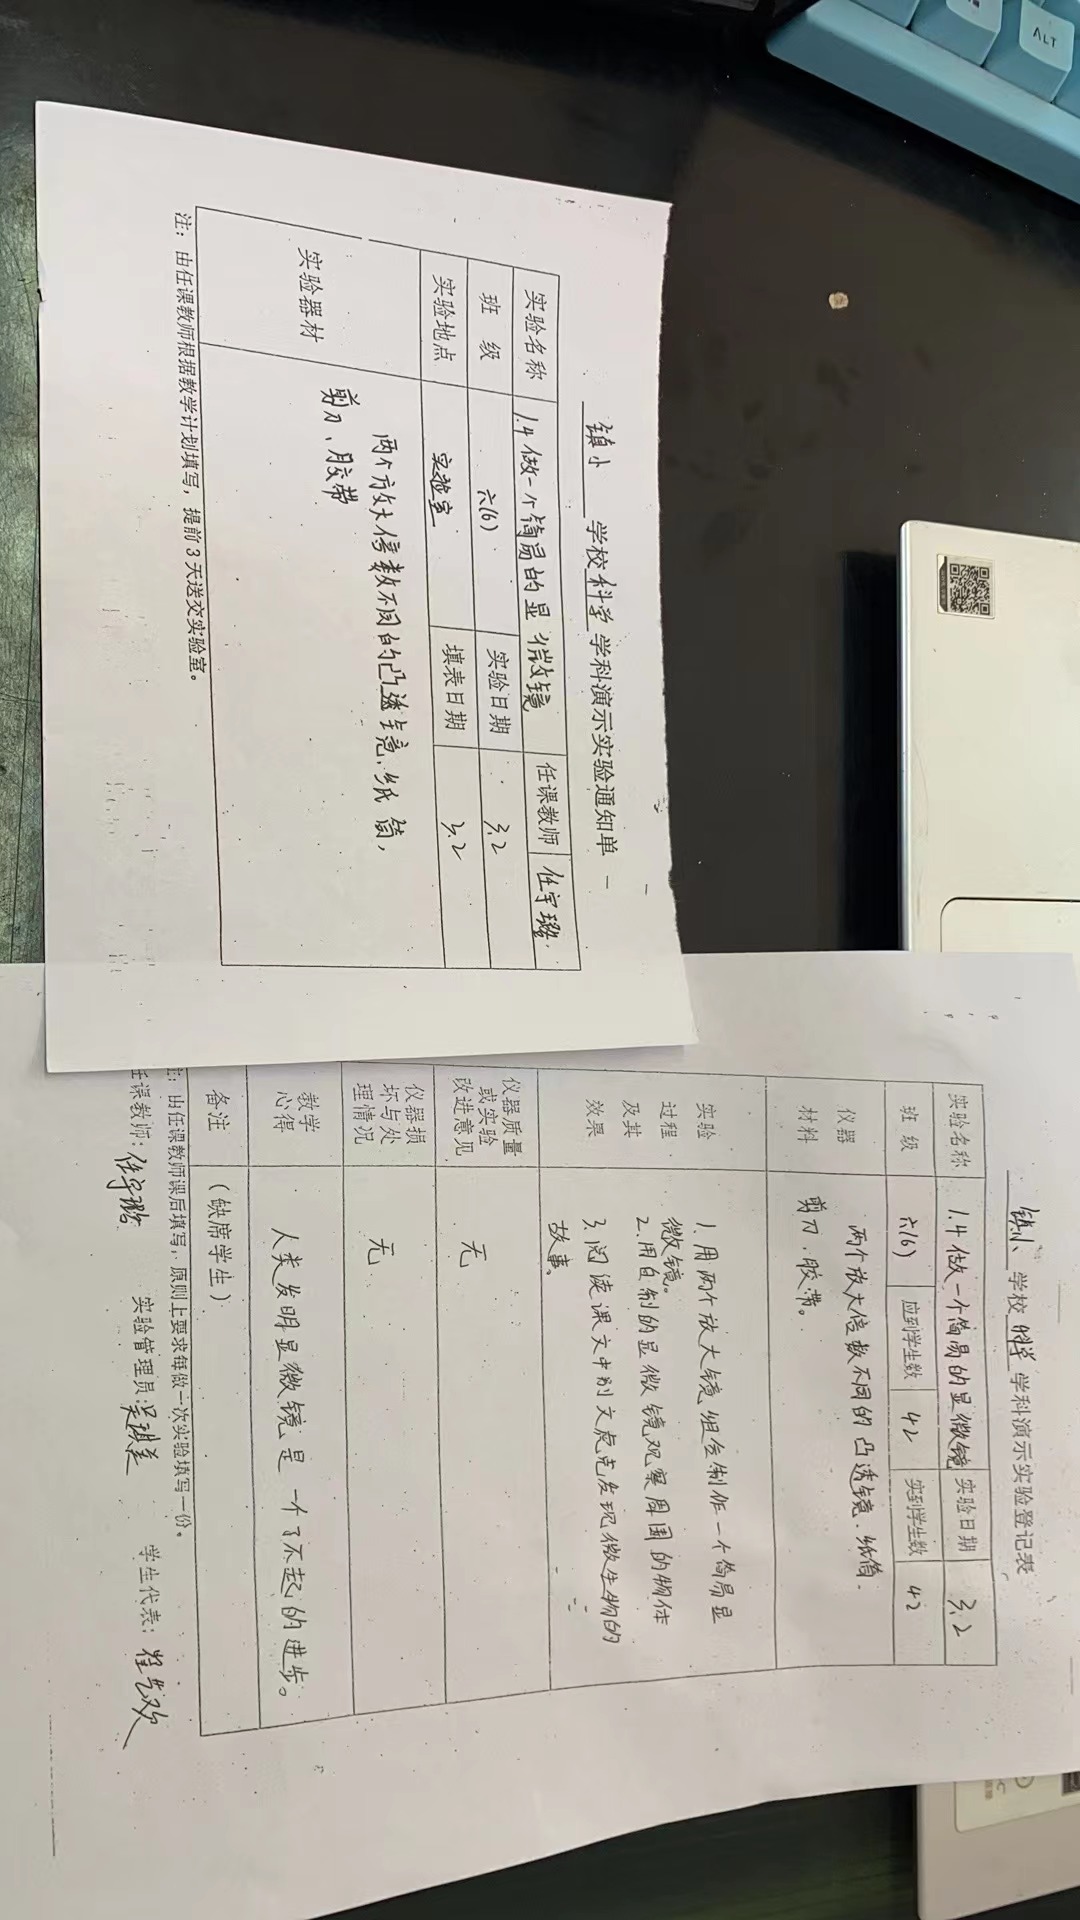 镇小 学校 科学 学科演示实验通知单
实验名称 1.4做一个简易的显微镜 任课教师 任宇璐
班 级 六(6) 实验日期 3.2
实验地点 实验室 填表日期 3.2
实验器材 两个放大倍数不同的凸透镜、纸筒,
剪刀、胶带
注：由任课教师根据教学计划填写，提前3天送交实验室。
镇小 学校 科学 学科演示实验登记表
实验名称 1.4做一个简易的显微镜 实验日期 3.2
班 级 六(6) 应到学生数 42 实到学生数 42
仪器
材料
两个放大倍数不同的凸透镜、纸筒、
剪刀、胶带。
实验
过程
及其
效果
1.用两个放大镜组合制作一个简易显
微镜。
2.用自制的显微镜观察周围的物体
3.阅读课文中列文虎克发现微生物的
故事。
仪器质量
或实验
改进意见
无
仪器损
坏与处
理情况
无
教学
心得
人类发明显微镜是一个了不起的进步。
备注 (缺席学生)
注：由任课教师课后填写，原则上要求每做一次实验填写一份。
任课教师：任宇璐 实验管理员： 学生代表：
ALT